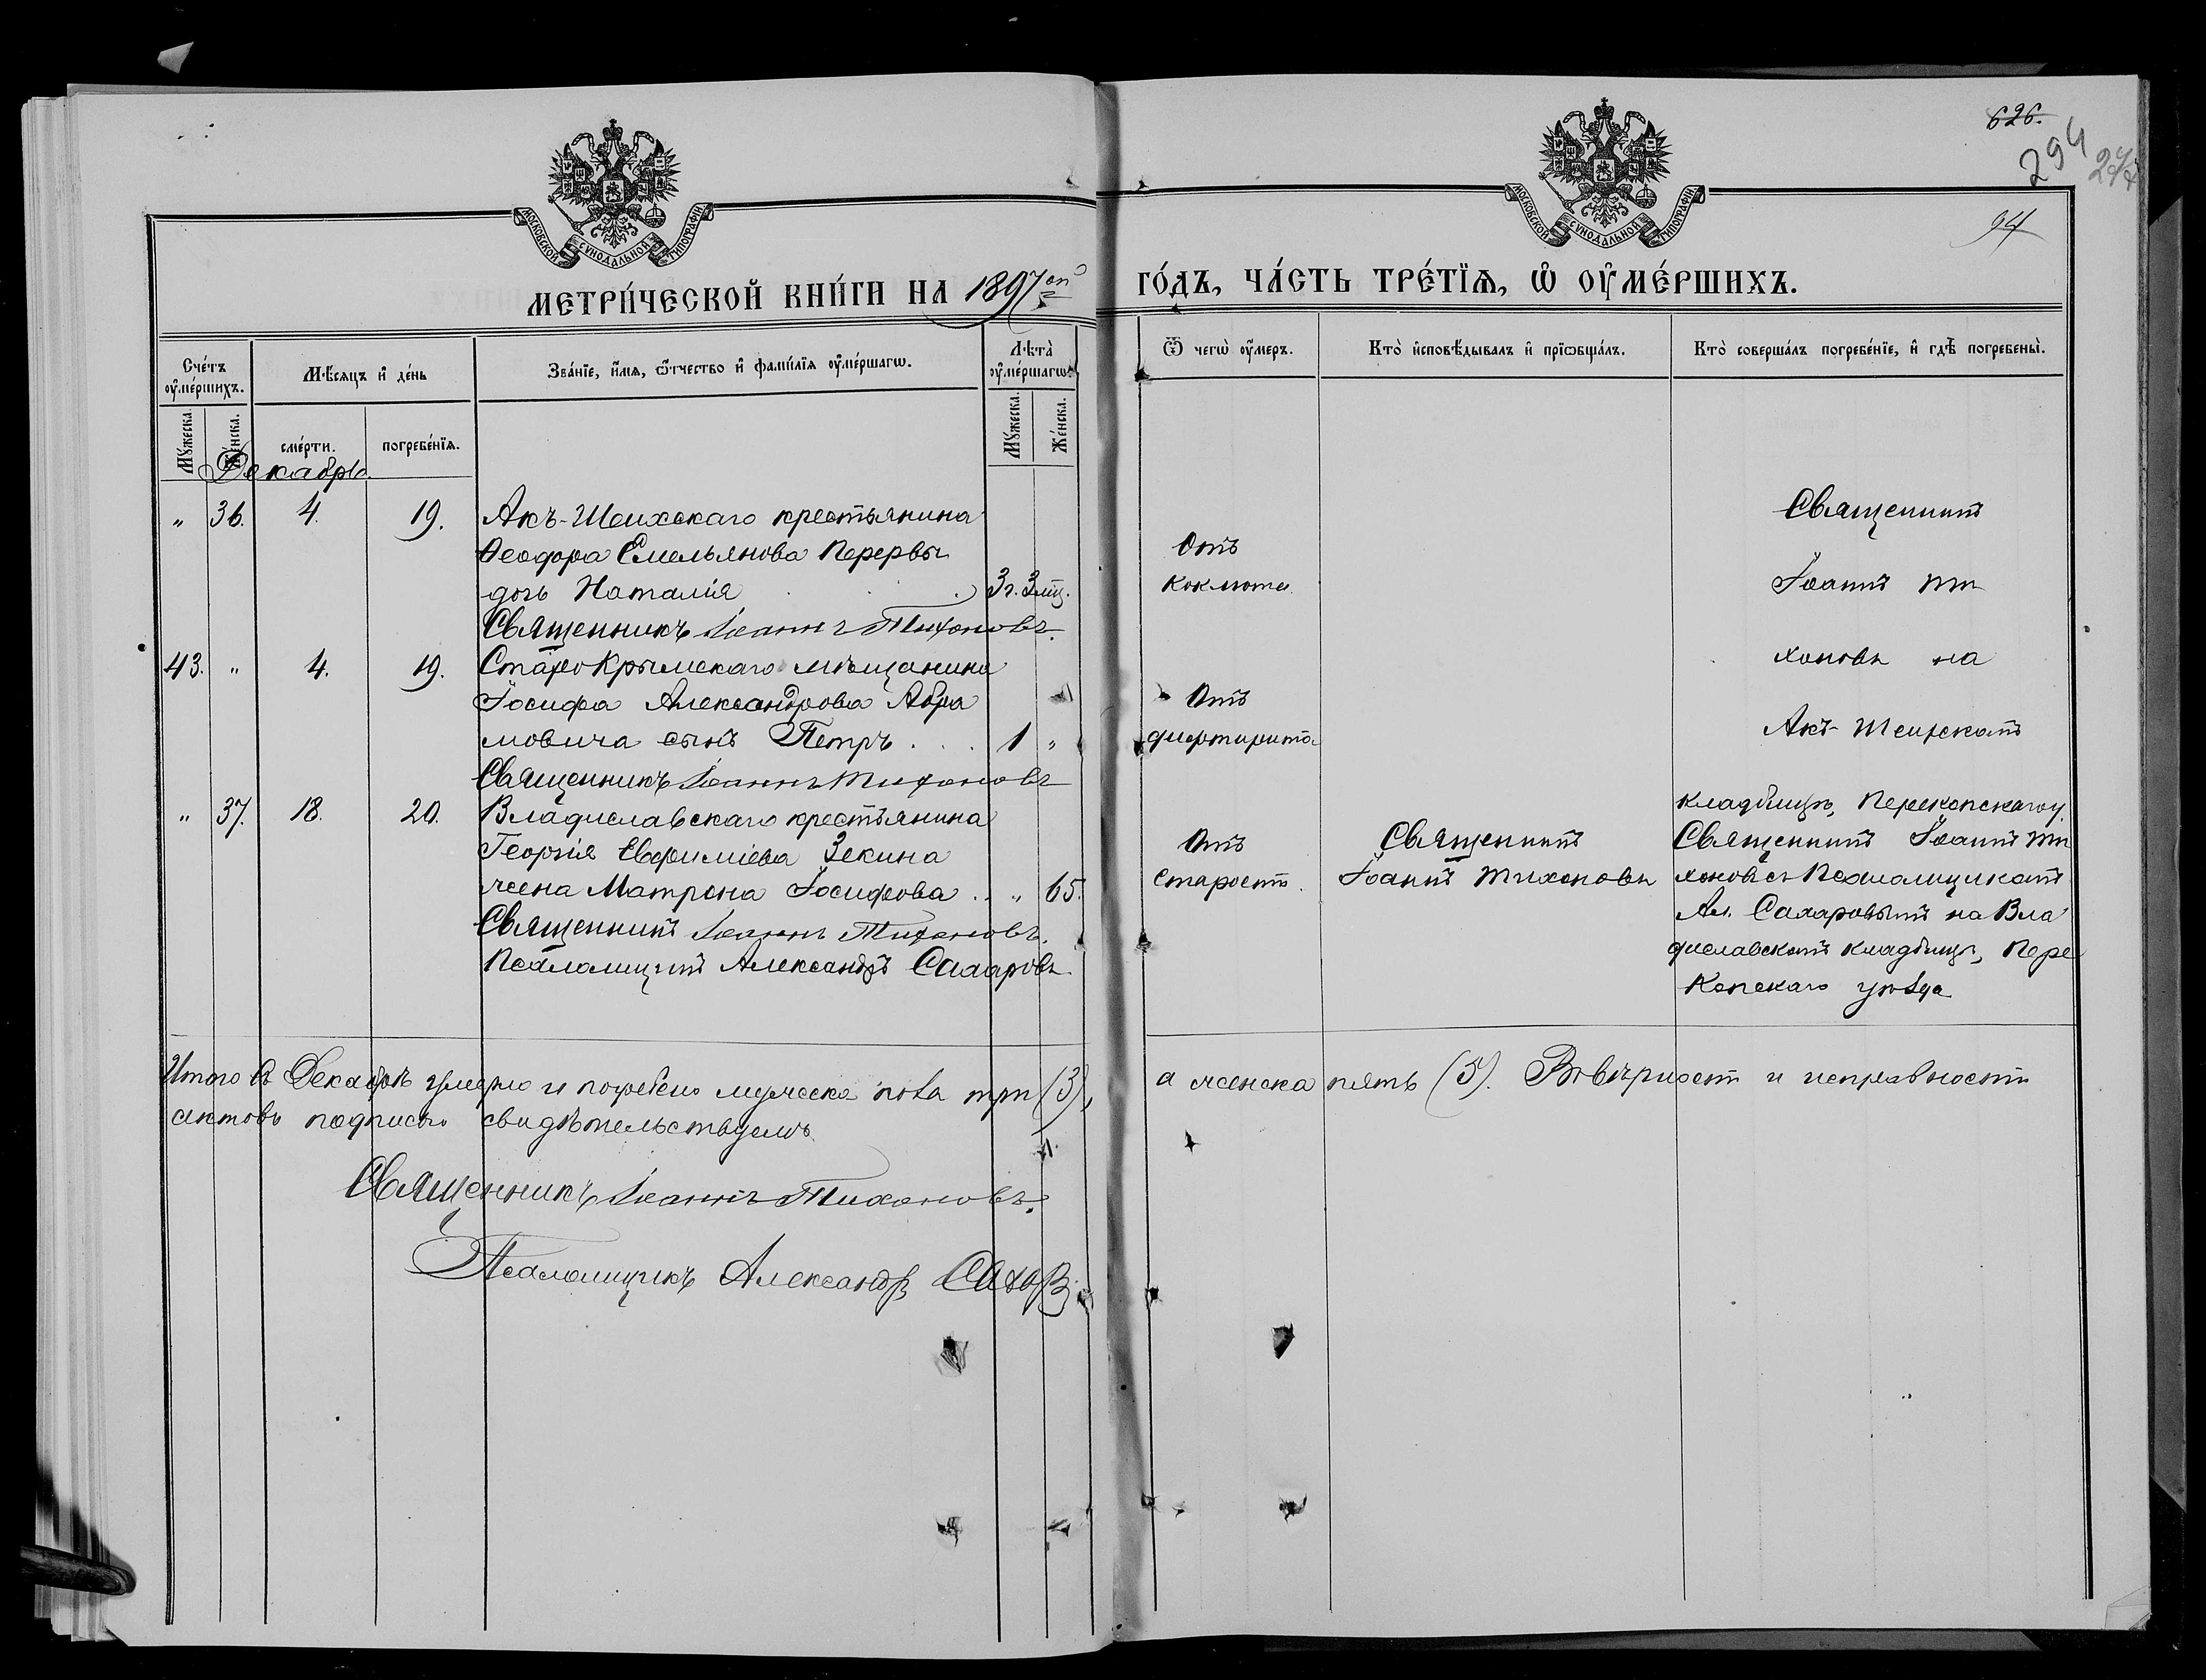 626.
294
94
МОСКОВСКОЙ СѴНОДАЛЬНОЙ ТИПОГРАФІИ
МОСКОВСКОЙ СѴНОДАЛЬНОЙ ТИПОГРАФІИ
МЕТРИ́ЧЕСКОЙ КНИ́ГИ НА 1897ой ГО́ДЪ, ЧА́СТЬ ТРЕ́ТЇѦ, Ѡ҆ ОУ҆МЕ́РШИХЪ.
Сче́тъ оу҆ме́ршихъ.
Мꙋжеска.
Же́нска.
Мѣ́сяцъ и҆ де́нь
сме́рти.
погребе́нїѧ.
Зва́нїе, и҆́мѧ, ѻ҆́тчество и҆ фами́лїѧ оу҆ме́ршагѡ.
Лѣ́та оу҆ме́ршагѡ.
Мꙋжеска.
Же́нска.
Ѿ чегѡ̀ оу҆́меръ.
Кто̀ и҆сповѣ́дывалъ и҆ прїѡбща́лъ.
Кто̀ соверша́лъ погребе́нїе, и҆ гдѣ̀ погребены̀.
Декабрь.
„ 36. 4. 19. Акъ-Шеихскаго крестьянина
Ѳеодора Емельянова Перервы
дочь Наталія . . 3 г. 3 мц.
Священникъ Іоаннъ Тихоновъ.
Отъ
коклюша.
Священникъ
Іоаннъ Ти
хоновъ на
Акъ-Шеихскомъ
кладбищѣ, Перекопскаго у.
43. „ 4. 19. Старо Крымскаго мѣщанина
Іосифа Александрова Абра
мовича сынъ Петръ . . . 1 „
Священникъ Іоаннъ Тихоновъ
Отъ
дифтирита
„ 37. 18. 20. Владиславскаго крестьянина
Георгія Евфиміева Зекина
жена Матрона Іосифова . . „ 65.
Священникъ Іоаннъ Тихоновъ.
Псаломщикъ Александръ Сахаровъ.
Отъ
старости.
Священникъ
Іоаннъ Тихоновъ
Священникъ Іоаннъ Ти
хоновъ съ Псаломщикомъ
Ал. Сахаровымъ на Вла
диславскомъ кладбищѣ, Пере
копскаго уѣзда
Итого въ Декабрѣ умерло и погребено мужеска пола три (3), а женска пять (5). Въ вѣрности и исправности
актовъ подписью свидѣтельствуемъ
Священникъ Іоаннъ Тихоновъ.
Псаломщикъ Александр